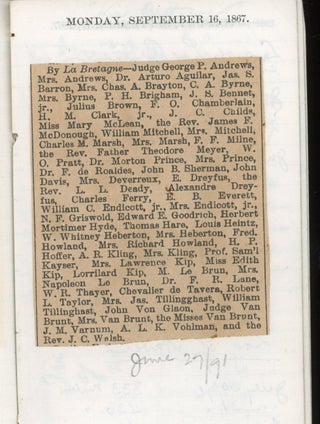 MONDAY, SEPTEMBER 16, 1867.
By La Bretagne—Judge George P. Andrews,
Mrs. Andrews, Dr. Arturo Aguilar, Jas. S.
Barron, Mrs. Chas. A. Brayton, C. A. Byrne,
Mrs. Byrne, P. H. Brigham, J. S. Bennet,
jr., Julius Brown, F. O. Chamberlain,
H. M. Clark, jr., J. C. Childs,
Miss Mary McLean, the Rev. James F.
McDonough, William Mitchell, Mrs. Mitchell,
Charles M. Marsh, Mrs. Marsh, F. F. Milne,
the Rev. Father Theodore Meyer, W.
O. Pratt, Dr. Morton Prince, Mrs. Prince,
Dr. F. de Roaides, John B. Sherman, John
Davis, Mrs. Deverreux, E. Dreyfus, the
Rev. L. L. Deady, Alexandre Drey-
fus, Charles Ferry, E. B. Everett,
William C. Endicott, jr., Mrs. Endicott, jr.,
N. F. Griswold, Edward E. Goodrich, Herbert
Mortimer Hyde, Thomas Hare, Louis Heintz,
W. Whitney Heberton, Mrs. Heberton, Fred.
Howland, Mrs. Richard Howland, H. P.
Hoffer, A. R. Kling, Mrs. Kling, Prof. Sam'l
Kayser, Mrs. Lawrence Kip, Miss Edith
Kip, Lorrilard Kip, M. Le Brun, Mrs.
Napoleon Le Brun, Dr. F. R. Lane,
W. R. Thayer, Chevalier de Tavera, Robert
L. Taylor, Mrs. Jas. Tillingghast, William
Tillinghast, John Von Glaon, Judge Van
Brunt, Mrs. Van Brunt, the Misses Van Brunt,
J. M. Varnum, A. L. K. Vohlman, and the
Rev. J. C. Walsh.
June 29/91